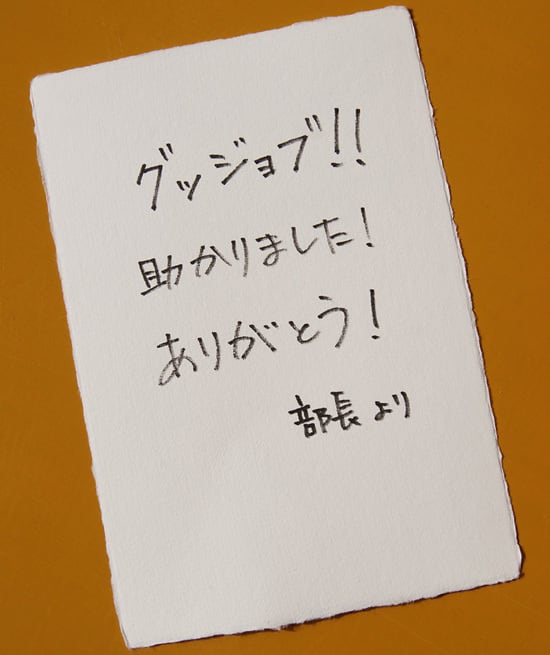 グッジョブ!!
助かりました!
ありがとう!
部長より